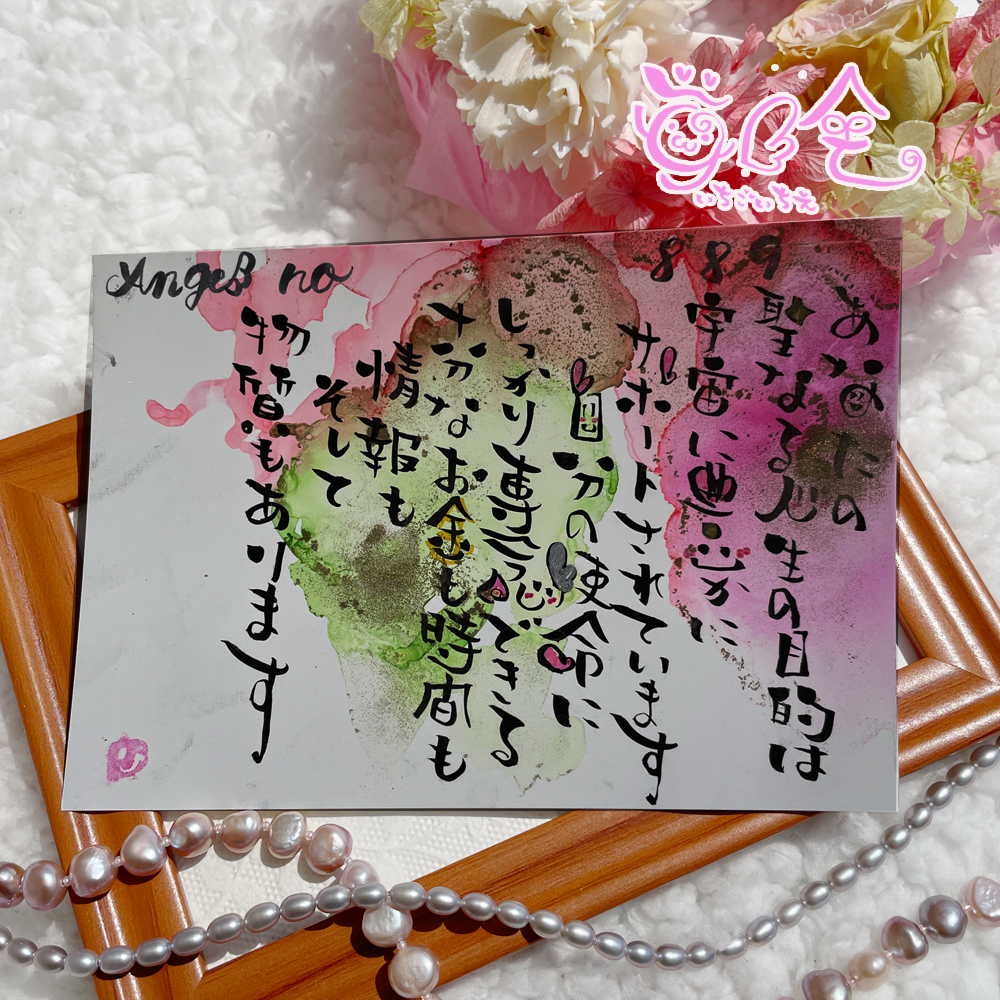 いちごいちえ
889
あなたの
聖なる人生の目的は
宇宙に豊かに
サポートされています
自分の使命に
しっかり専念できる
十分なお金も時間も
情報も
そして
物質もあります
Angels no